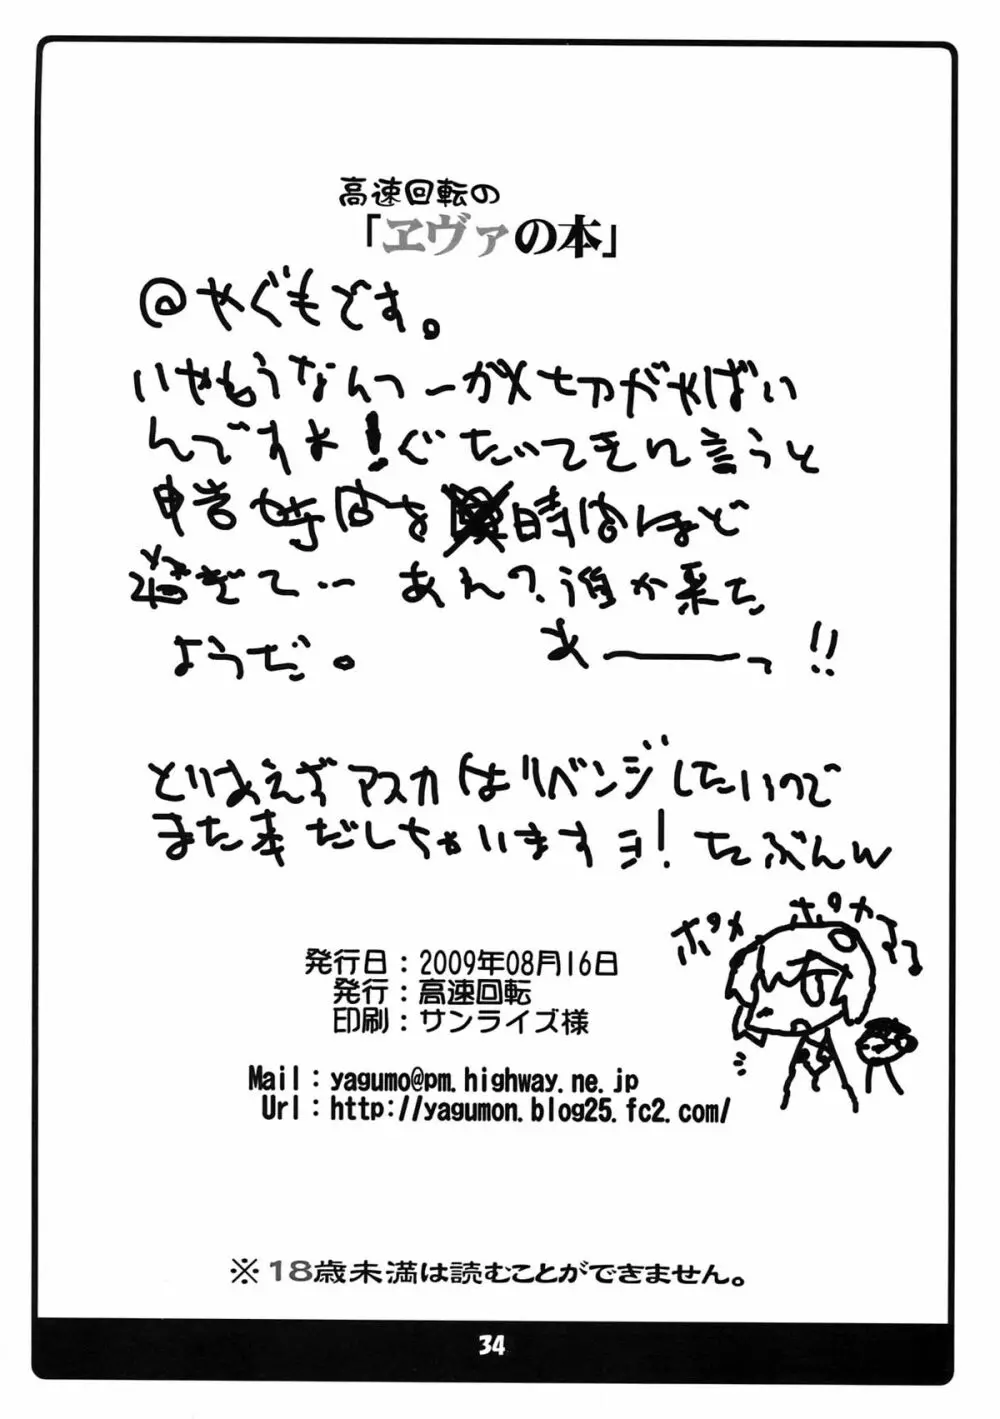 高速回転の
「ヱヴァの本」
@やぐもです。
いやもうなんつーか〆切がやばい
んですよ!ぐたいてきに言うと
申告時間を 時間ほど
過ぎて… あれ?誰か来た
ようだ。 あーーっ!!
とりあえずアスカはリベンジしたいので
また本だしちゃいますヨ!たぶんw
ポメ ポカ
発行日:2009年08月16日
発行:高速回転
印刷:サンライズ様
Mail:yagumo@pm.highway.ne.jp
Url:http://yagumon.blog25.fc2.com/
※18歳未満は読むことができません。
34